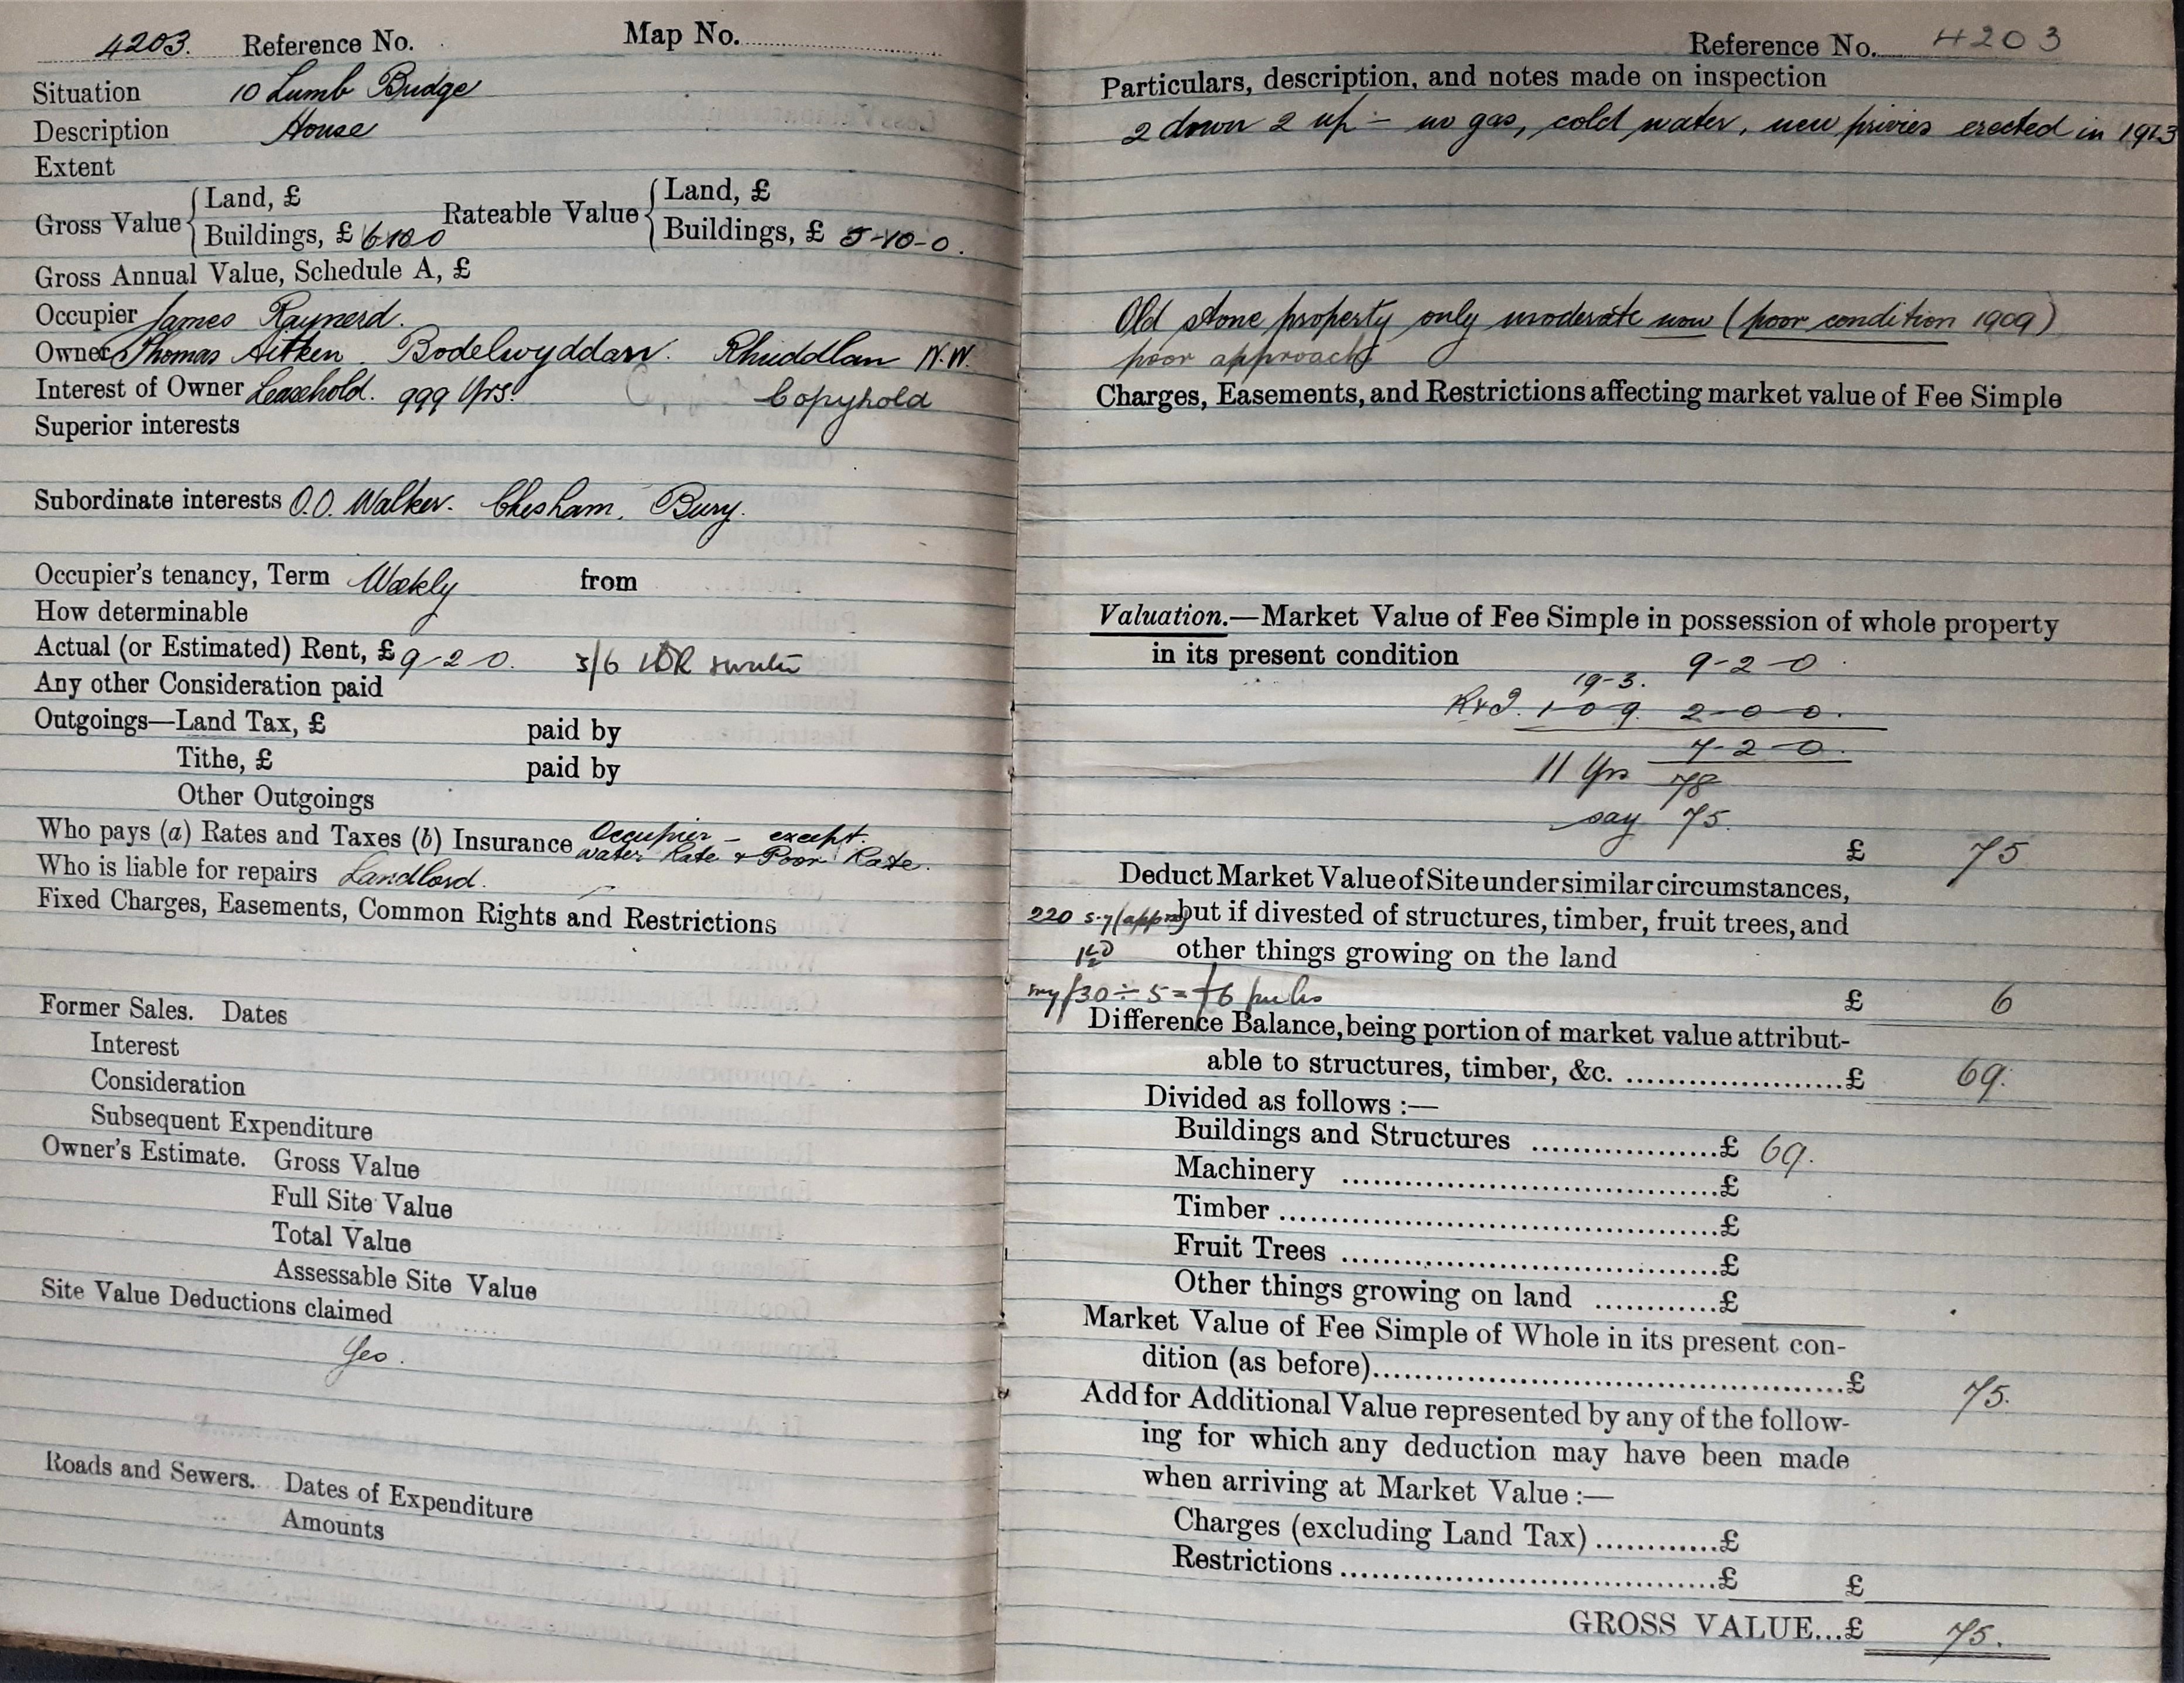 4203. Reference No. Map No.
Situation 10 Lumb Bridge
Description House
Extent
Gross Value { Land, £ Rateable Value { Land, £
Buildings, £ 6 10 0 Buildings, £ 5-10-0.
Gross Annual Value, Schedule A, £
Occupier James Raynerd.
Owner Thomas Aitken. Bodelwyddan. Rhuddlan N.W.
Interest of Owner Leasehold. 999 Yrs. Copyhold
Superior interests
Subordinate interests O.O. Walker. Chesham. Bury.
Occupier's tenancy, Term Weekly from
How determinable
Actual (or Estimated) Rent, £ 9-2-0. 3/6
Any other Consideration paid
Outgoings—Land Tax, £ paid by
Tithe, £ paid by
Other Outgoings
Who pays (a) Rates and Taxes (b) Insurance Occupier - except.
water Rate & Poor Rate.
Who is liable for repairs Landlord.
Fixed Charges, Easements, Common Rights and Restrictions
Former Sales. Dates
Interest
Consideration
Subsequent Expenditure
Owner's Estimate. Gross Value
Full Site Value
Total Value
Assessable Site Value
Site Value Deductions claimed
Yes.
Roads and Sewers. Dates of Expenditure
Amounts
Reference No. 4203
Particulars, description, and notes made on inspection
2 down 2 up - no gas, cold water, new privies erected in 1913
Old stone property only moderate now (poor condition 1909)
poor approach
Charges, Easements, and Restrictions affecting market value of Fee Simple
Valuation.—Market Value of Fee Simple in possession of whole property
in its present condition 9-2-0.
19-3.
R&I. 1-0-9. 2-0-0.
7-2-0.
11 Yrs 78
say 75.
£ 75
Deduct Market Value of Site under similar circumstances,
220 s.y (approx) but if divested of structures, timber, fruit trees, and
other things growing on the land
say £30 ÷ 5 = £6 £ 6
Difference Balance, being portion of market value attribut-
able to structures, timber, &c. ....................£ 69.
Divided as follows :—
Buildings and Structures ..................£ 69.
Machinery ....................................£
Timber ..........................................£
Fruit Trees ....................................£
Other things growing on land ............£
Market Value of Fee Simple of Whole in its present con-
dition (as before)..........................................£ 75.
Add for Additional Value represented by any of the follow-
ing for which any deduction may have been made
when arriving at Market Value :—
Charges (excluding Land Tax) ............£
Restrictions ....................................£ £
GROSS VALUE...£ 75.